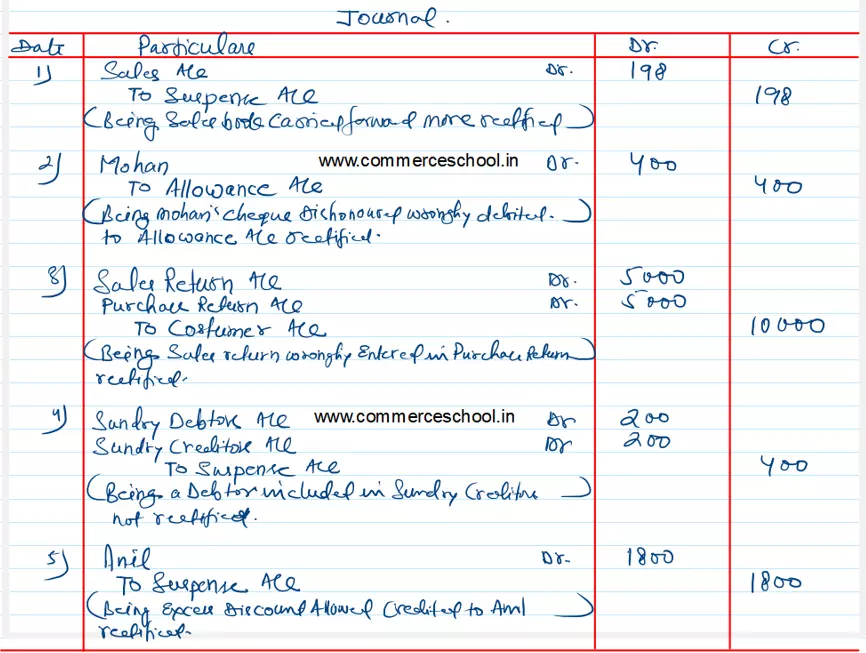 Journal.
Date Particulare Dr. Cr.
1) Sales A/c Dr. 198
To Suspense A/c 198
(Being Sales book Carried forward more rectified)
2) Mohan www.commerceschool.in Dr. 400
To Allowance A/c 400
(Being Mohan's Cheque Dishonoured wrongly debited.
to Allowance A/c rectified.
3) Sales Return A/c Dr. 5000
Purchase Return A/c Dr. 5000
To Costumer A/c 10000
(Being Sales return wrongly Entered in Purchase Return)
rectified.
4) Sundry Debtors A/c www.commerceschool.in Dr 200
Sundry Creditors A/c Dr 200
To Suspense A/c 400
(Being a Debtor included in Sundry Creditors)
not rectified.
5) Anil Dr. 1800
To Suspense A/c 1800
(Being Excess Discount Allowed Credited to Anil)
rectified.